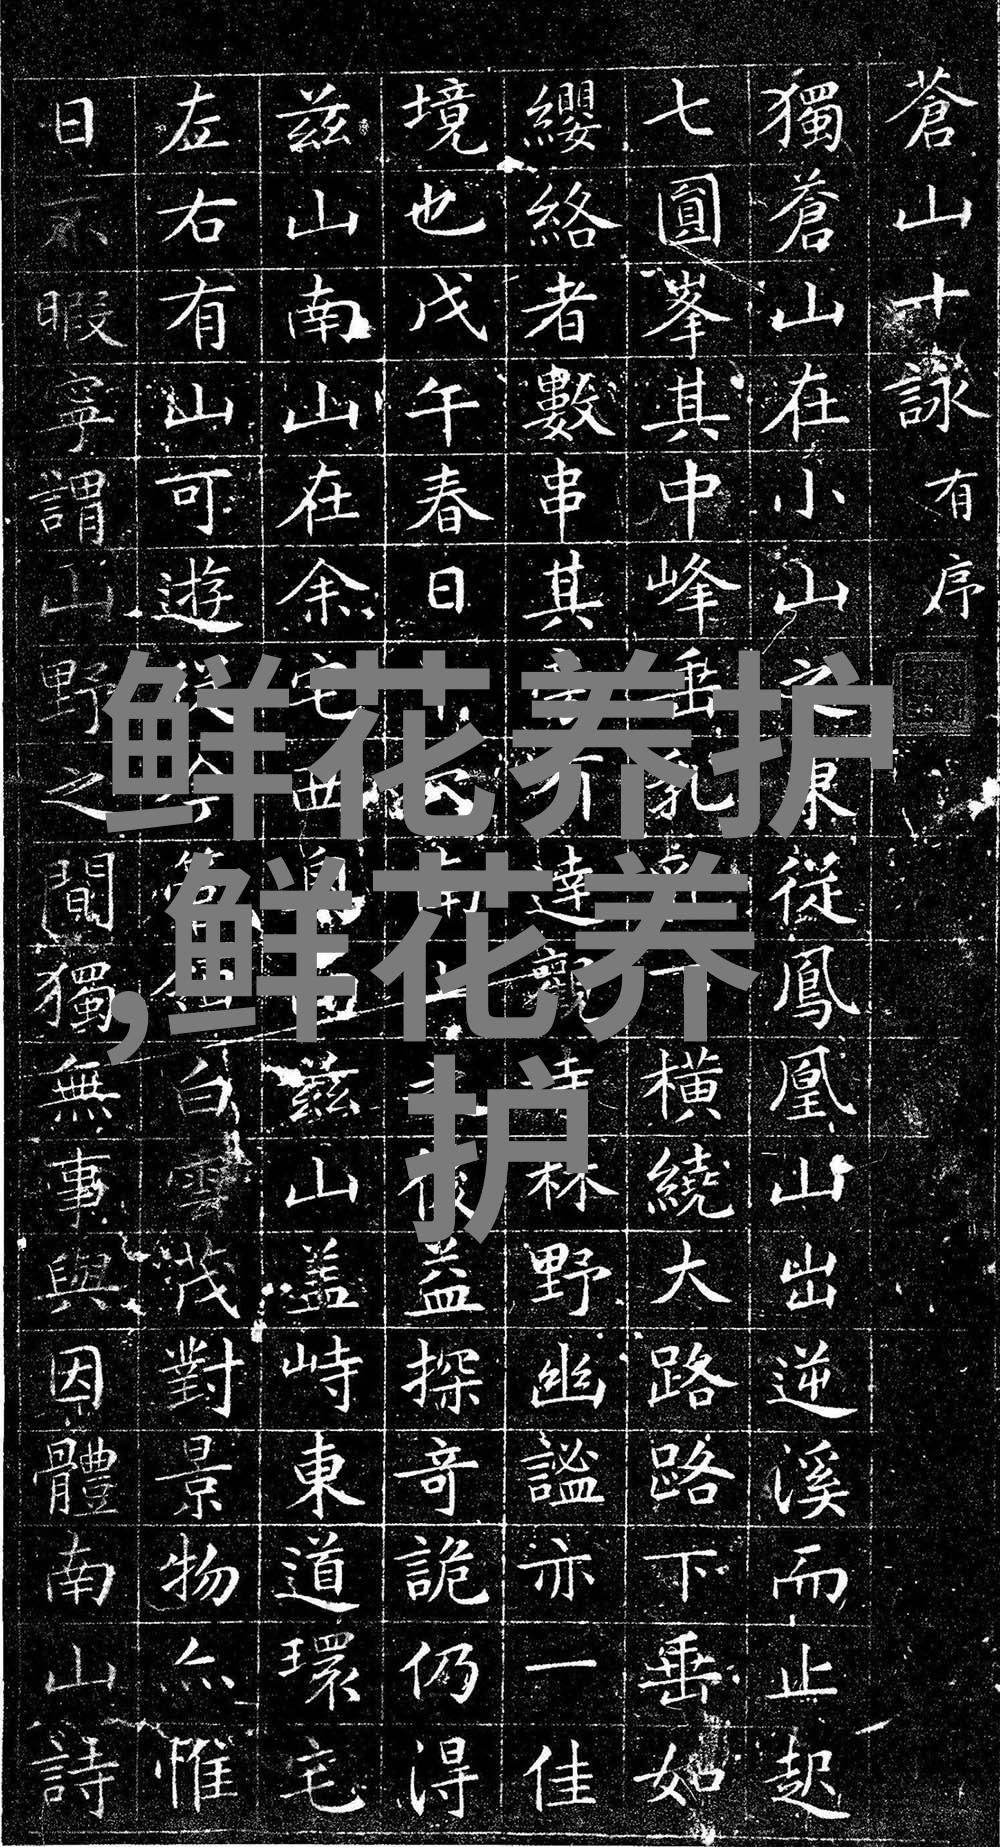 蒼山十詠 有序
獨蒼山在小山之東從鳳凰山出逆溪而止起
七圓峯其中峰垂乳橫繞大路路下垂如
纓絡者數串其達林野幽謐亦一佳
境也戊午春日南益探奇詭仍得
茲山南山在余宅西茲山蓋峙東道環宅
左右有山可遊從白雲茂對景物亦惟
日不暇寧謂山野之間獨無事與因體南山詩
鲜花养护
,鲜花养
护